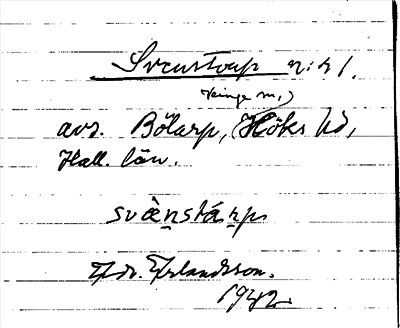 Svenstorp n:r 1.
avs. Bölarp, Höks hd,
Hall. län.
svä̀nstárp
Fr. Erlandsson.
1942.